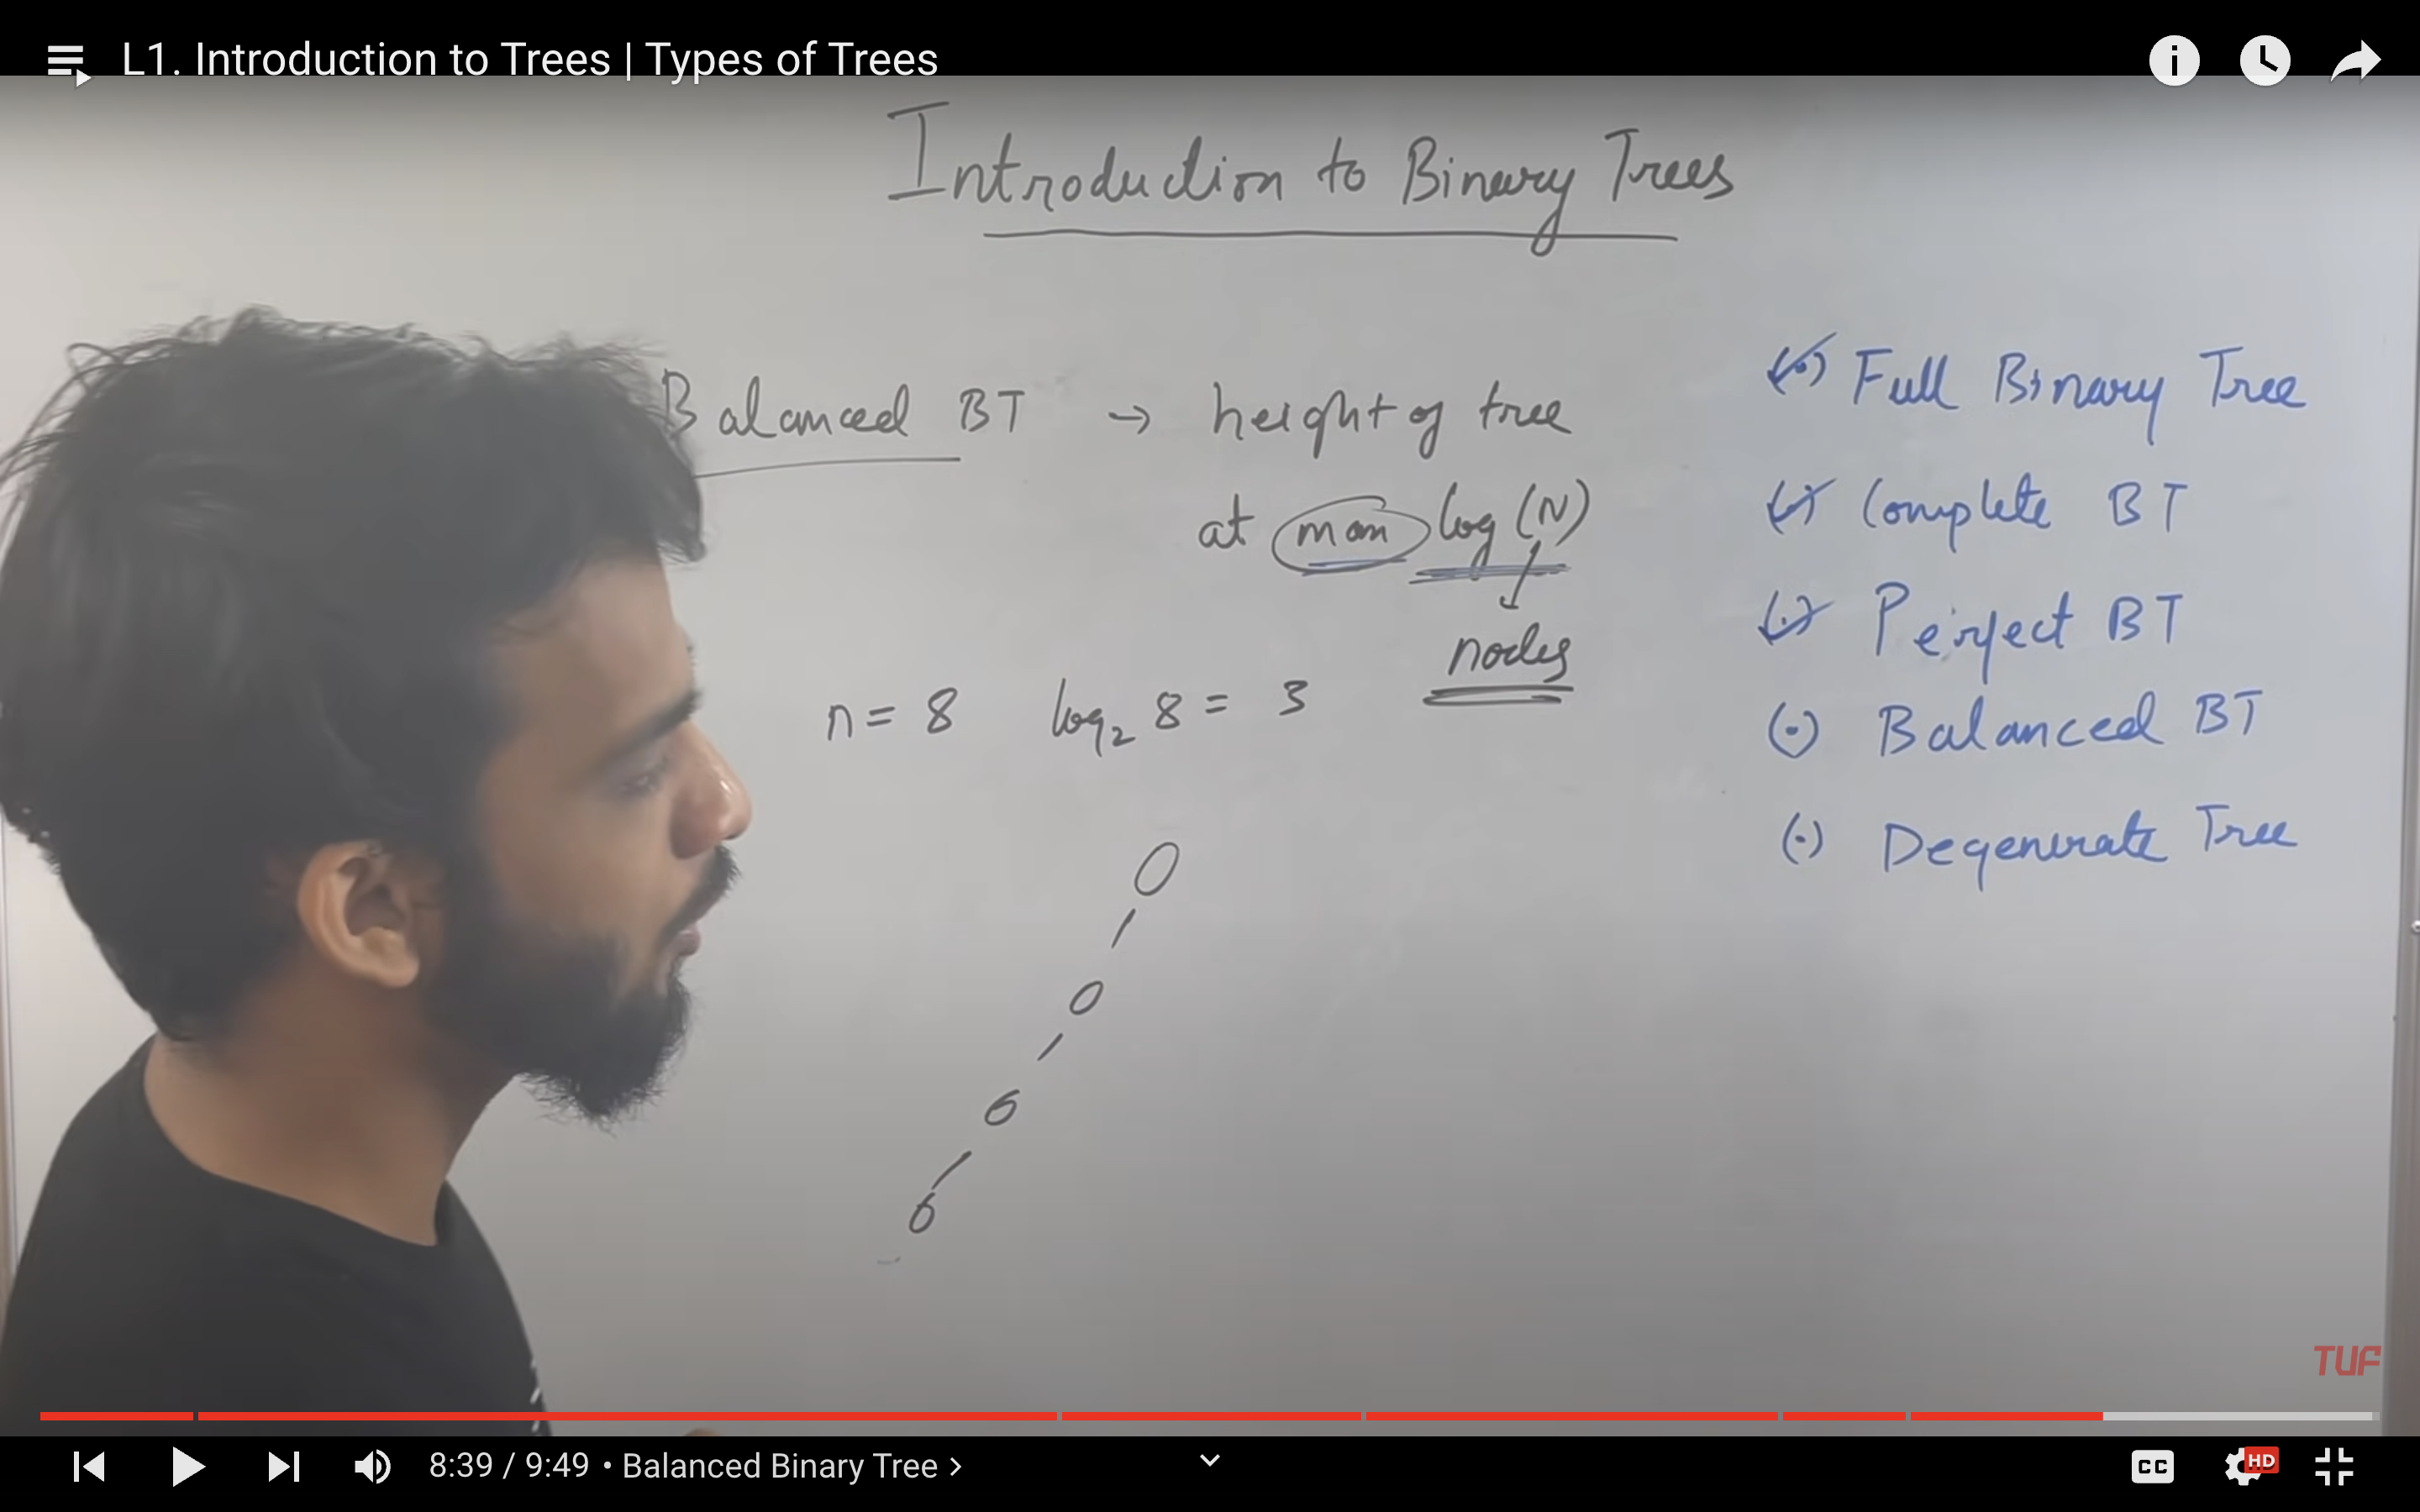 L1. Introduction to Trees | Types of Trees
Introduction to Binary Trees
Balanced BT → height of tree
at max log (N)
nodes
n = 8 log₂ 8 = 3
(•) Full Binary Tree
(•) Complete BT
(•) Perfect BT
(•) Balanced BT
(•) Degenerate Tree
TUF
8:39 / 9:49 • Balanced Binary Tree >
CC
HD